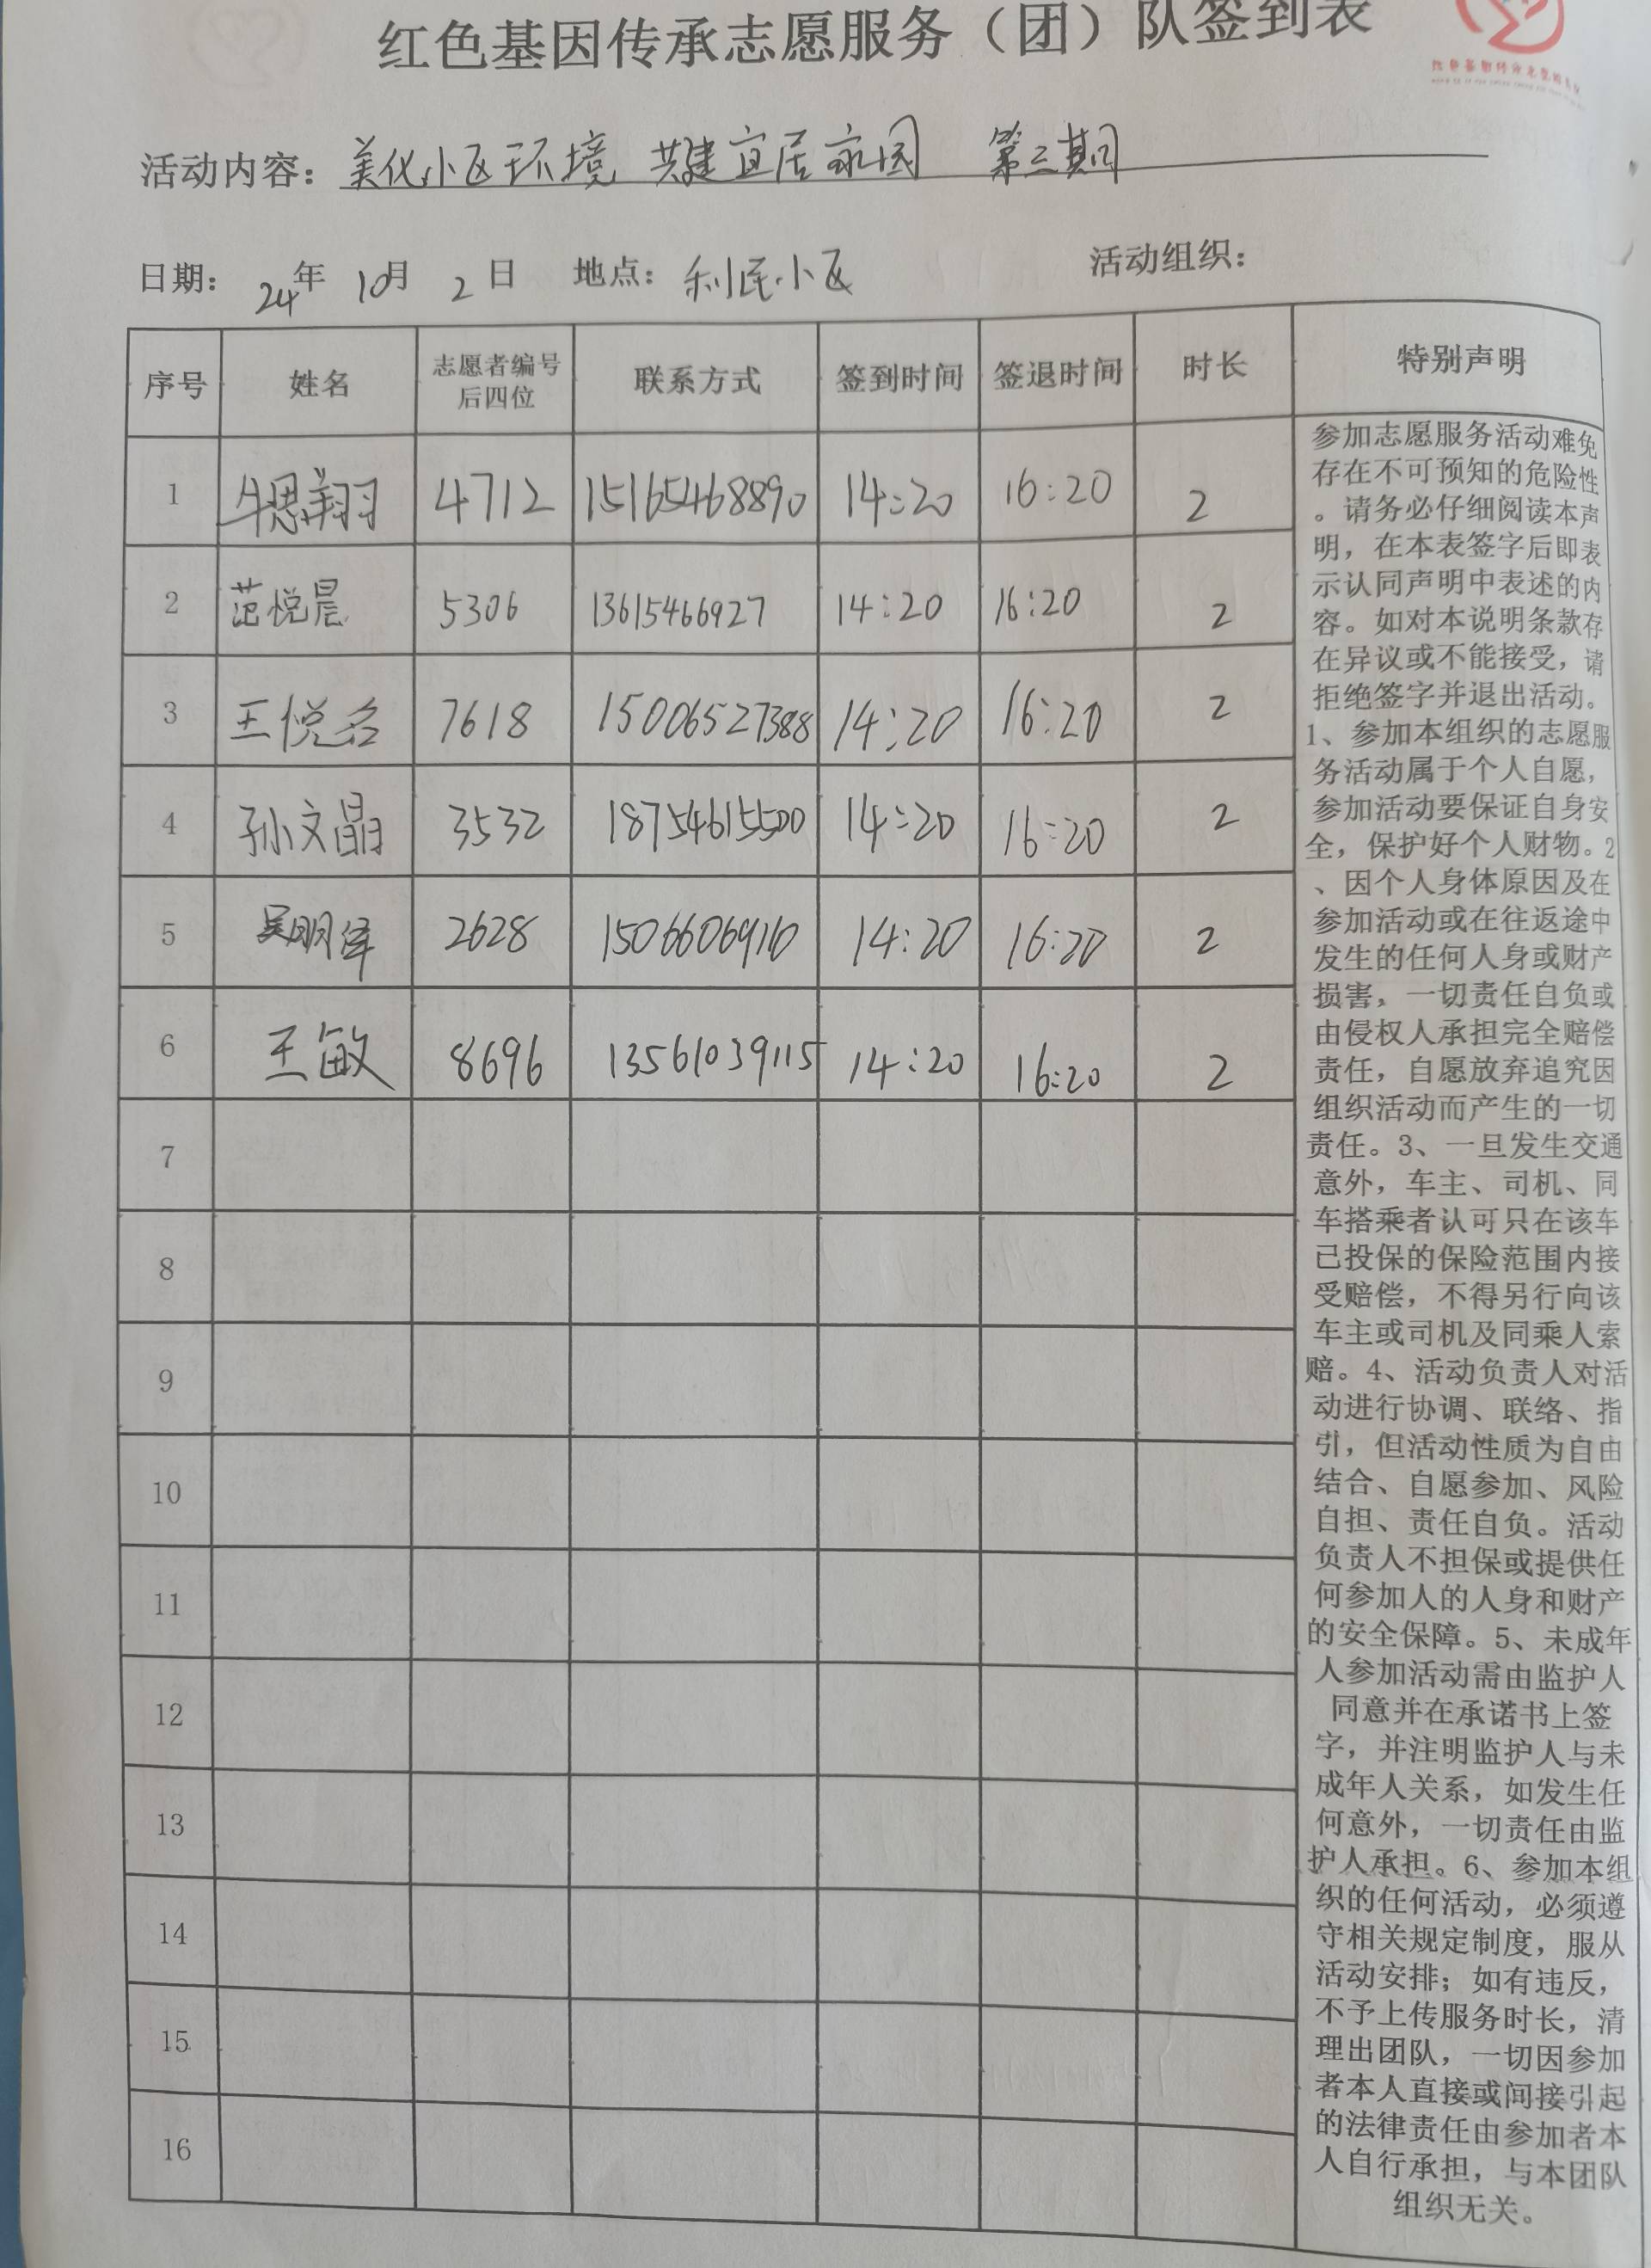 红色基因传承志愿服务（团）队签到表
活动内容：美化小区环境 共建宜居家园 第三期
日期：24年 10月 2日 地点：利民小区 活动组织：
序号 姓名 志愿者编号后四位 联系方式 签到时间 签退时间 时长 特别声明
1 牛思翔 4712 15165468890 14:20 16:20 2
2 范悦晨 5306 13615466927 14:20 16:20 2
3 王悦名 7618 15006527388 14:20 16:20 2
4 孙文晶 3532 18754615500 14:20 16:20 2
5 吴明泽 2628 15066069910 14:20 16:20 2
6 王敏 8696 13561039115 14:20 16:20 2
7
8
9
10
11
12
13
14
15
16
参加志愿服务活动难免
存在不可预知的危险性
。请务必仔细阅读本声
明，在本表签字后即表
示认同声明中表述的内
容。如对本说明条款存
在异议或不能接受，请
拒绝签字并退出活动。
1、参加本组织的志愿服
务活动属于个人自愿，
参加活动要保证自身安
全，保护好个人财物。2
、因个人身体原因及在
参加活动或在往返途中
发生的任何人身或财产
损害，一切责任自负或
由侵权人承担完全赔偿
责任，自愿放弃追究因
组织活动而产生的一切
责任。3、一旦发生交通
意外，车主、司机、同
车搭乘者认可只在该车
已投保的保险范围内接
受赔偿，不得另行向该
车主或司机及同乘人索
赔。4、活动负责人对活
动进行协调、联络、指
引，但活动性质为自由
结合、自愿参加、风险
自担、责任自负。活动
负责人不担保或提供任
何参加人的人身和财产
的安全保障。5、未成年
人参加活动需由监护人
同意并在承诺书上签
字，并注明监护人与未
成年人关系，如发生任
何意外，一切责任由监
护人承担。6、参加本组
织的任何活动，必须遵
守相关规定制度，服从
活动安排；如有违反，
不予上传服务时长，清
理出团队，一切因参加
者本人直接或间接引起
的法律责任由参加者本
人自行承担，与本团队
组织无关。